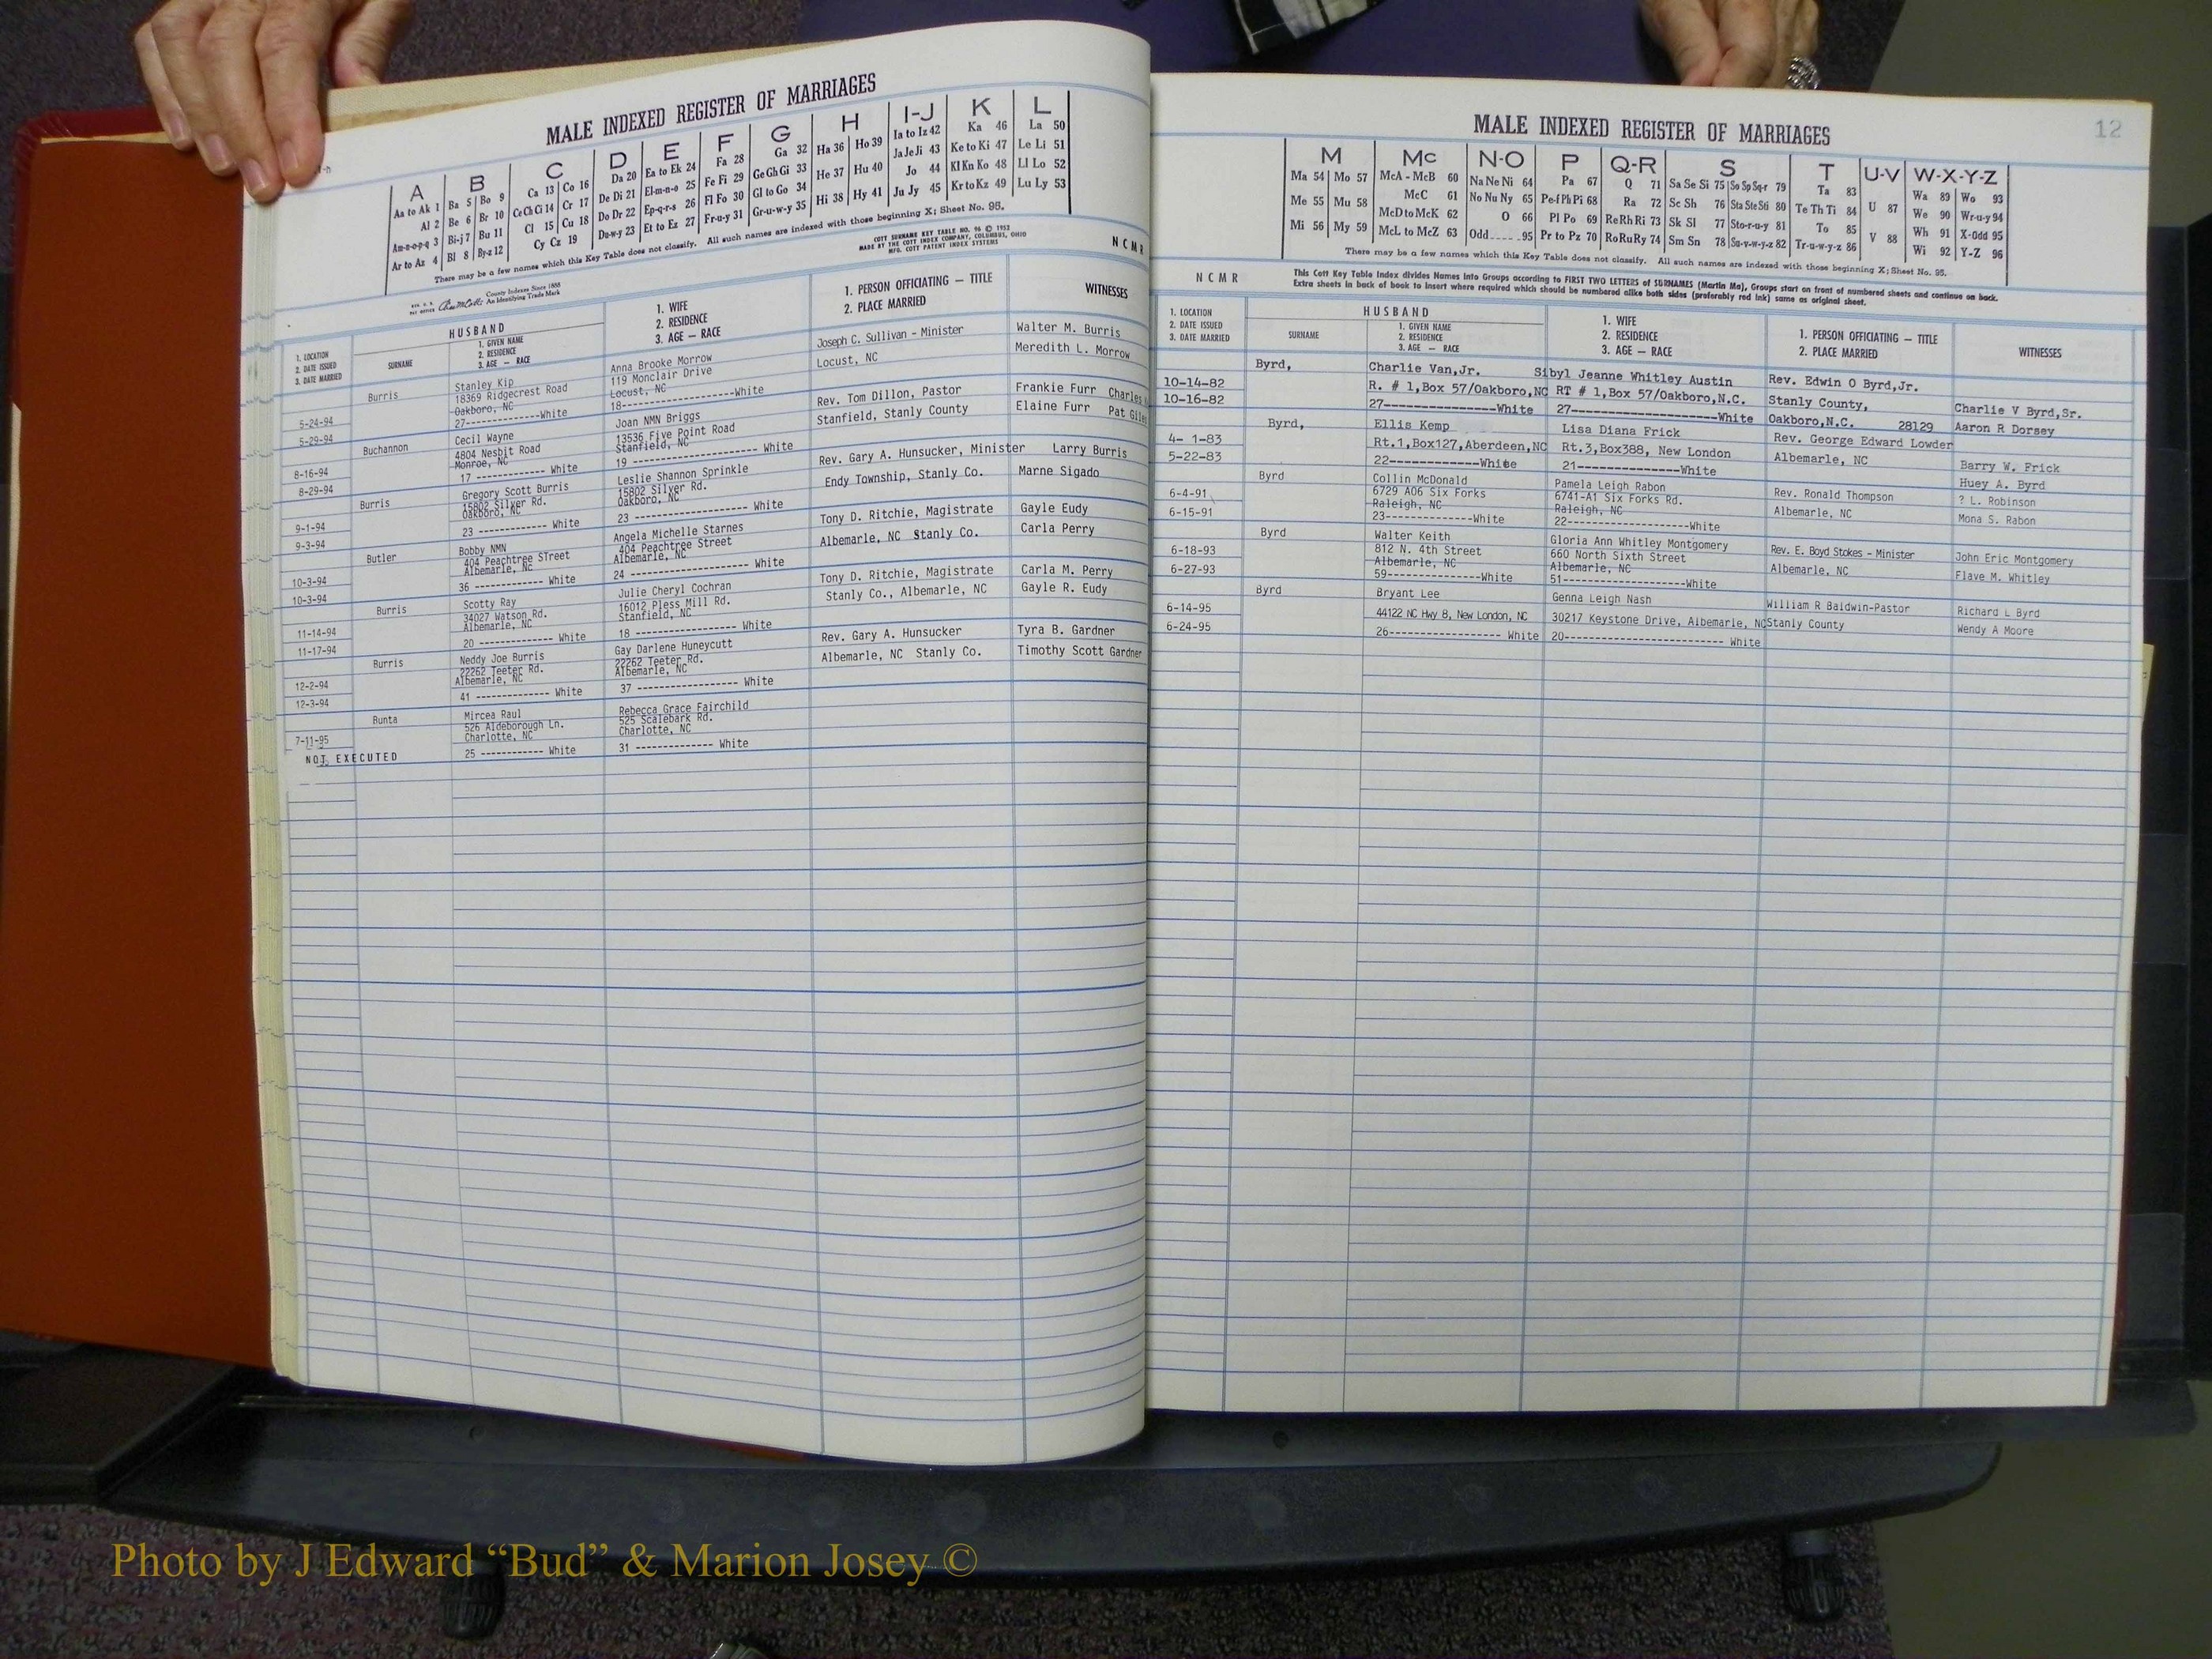 MALE INDEXED REGISTER OF MARRIAGES
A B C D E F G H I-J K L
Aa to Ak 1 Ba 5 Bo 9 Ca 13 Co 16 Da 20 Ea to Ek 24 Fa 28 Ga 32 Ha 36 Ho 39 Ia to Iz 42 Ka 46 La 50
Al 2 Be 6 Br 10 Ce Ch Ci 14 Cr 17 De Di 21 El-m-n-o 25 Fe Fi 29 Ge Gh Gi 33 He 37 Hu 40 Ja Je Ji 43 Ke to Ki 47 Le Li 51
Am-n-o-p-q 3 Bi-j 7 Bu 11 Cl 15 Cu 18 Do Dr 22 Ep-q-r-s 26 Fl Fo 30 Gl to Go 34 Hi 38 Hy 41 Jo 44 Kl Kn Ko 48 Ll Lo 52
Ar to Az 4 Bl 8 By-z 12 Cy Cz 19 Du-w-y 23 Et to Ez 27 Fr-u-y 31 Gr-u-w-y 35 Ju Jy 45 Kr to Kz 49 Lu Ly 53
There may be a few names which this Key Table does not classify. All such names are indexed with those beginning X; Sheet No. 95.
COTT SURNAME KEY TABLE NO. 96 © 1952
MADE BY THE COTT INDEX COMPANY, COLUMBUS, OHIO
MFG. COTT PATENT INDEX SYSTEMS
County Indexes Since 1888
An Identifying Trade Mark
N C M R
1. LOCATION
2. DATE ISSUED
3. DATE MARRIED
HUSBAND
SURNAME
1. GIVEN NAME
2. RESIDENCE
3. AGE — RACE
1. WIFE
2. RESIDENCE
3. AGE — RACE
1. PERSON OFFICIATING — TITLE
2. PLACE MARRIED
WITNESSES
Burris Stanley Kip Anna Brooke Morrow Joseph C. Sullivan - Minister Walter M. Burris
18369 Ridgecrest Road 119 Monclair Drive Locust, NC Meredith L. Morrow
5-24-94 Oakboro, NC Locust, NC
5-29-94 27-----------White 18-----------------------White
Buchannon Cecil Wayne Joan NMN Briggs Rev. Tom Dillon, Pastor Frankie Furr Charles
8-16-94 4804 Nesbit Road 13536 Five Point Road Stanfield, Stanly County Elaine Furr Pat Giles
Monroe, NC Stanfield, NC
8-29-94 17 ---------- White 19 ---------------------- White
Burris Gregory Scott Burris Leslie Shannon Sprinkle Rev. Gary A. Hunsucker, Minister Larry Burris
9-1-94 15802 Silver Rd. 15802 Silver Rd. Endy Township, Stanly Co. Marne Sigado
Oakboro, NC Oakboro, NC
9-3-94 23 ------------ White 23 -------------------- White
Butler Bobby NMN Angela Michelle Starnes Tony D. Ritchie, Magistrate Gayle Eudy
10-3-94 404 Peachtree STreet 404 Peachtree Street Albemarle, NC Stanly Co. Carla Perry
Albemarle, NC Albemarle, NC
10-3-94 36 ------------ White 24 -------------------- White
Burris Scotty Ray Julie Cheryl Cochran Tony D. Ritchie, Magistrate Carla M. Perry
11-14-94 34027 Watson Rd. 16012 Pless Mill Rd. Stanly Co., Albemarle, NC Gayle R. Eudy
Albemarle, NC Stanfield, NC
11-17-94 20 ------------- White 18 ------------------ White
Burris Neddy Joe Burris Gay Darlene Huneycutt Rev. Gary A. Hunsucker Tyra B. Gardner
12-2-94 22262 Teeter Rd. 22262 Teeter Rd. Albemarle, NC Stanly Co. Timothy Scott Gardner
Albemarle, NC Albemarle, NC
12-3-94 41 -------------- White 37 ----------------- White
Bunta Mircea Raul Rebecca Grace Fairchild
7-11-95 526 Aldeborough Ln. 525 Scalebark Rd.
Charlotte, NC Charlotte, NC
NOT EXECUTED 25 ------------ White 31 -------------- White
12
MALE INDEXED REGISTER OF MARRIAGES
M Mc N-O P Q-R S T U-V W-X-Y-Z
Ma 54 Mo 57 McA - McB 60 Na Ne Ni 64 Pa 67 Q 71 Sa Se Si 75 So Sp Sq-r 79 Ta 83 Wa 89 Wo 93
Me 55 Mu 58 McC 61 No Nu Ny 65 Pe-f Ph Pi 68 Ra 72 Sc Sh 76 Sta Ste Sti 80 Te Th Ti 84 U 87 We 90 Wr-u-y 94
Mi 56 My 59 McD to McK 62 O 66 Pl Po 69 Re Rh Ri 73 Sk Sl 77 Sto-r-u-y 81 To 85 V 88 Wh 91 X-Odd 95
McL to McZ 63 Odd 95 Pr to Pz 70 Ro Ru Ry 74 Sm Sn 78 Su-v-w-y-z 82 Tr-u-w-y-z 86 Wi 92 Y-Z 96
There may be a few names which this Key Table does not classify. All such names are indexed with those beginning X; Sheet No. 95.
N C M R
This Cott Key Table Index divides Names into Groups according to FIRST TWO LETTERS of SURNAMES (Martin Ma), Groups start on front of numbered sheets and continue on back.
Extra sheets in back of book to insert where required which should be numbered alike both sides (preferably red ink) same as original sheet.
1. LOCATION
2. DATE ISSUED
3. DATE MARRIED
HUSBAND
SURNAME
1. GIVEN NAME
2. RESIDENCE
3. AGE — RACE
1. WIFE
2. RESIDENCE
3. AGE — RACE
1. PERSON OFFICIATING — TITLE
2. PLACE MARRIED
WITNESSES
Byrd, Charlie Van,Jr. Sibyl Jeanne Whitley Austin Rev. Edwin O Byrd,Jr.
10-14-82 R. # 1,Box 57/Oakboro,NC RT # 1,Box 57/Oakboro,N.C. Stanly County, Charlie V Byrd,Sr.
10-16-82 27---------------White 27--------------------White Oakboro,N.C. 28129 Aaron R Dorsey
Byrd, Ellis Kemp Lisa Diana Frick Rev. George Edward Lowder
4- 1-83 Rt.1,Box127,Aberdeen,NC Rt.3,Box388, New London Albemarle, NC Barry W. Frick
5-22-83 22------------White 21--------------White Huey A. Byrd
Byrd Collin McDonald Pamela Leigh Rabon
6-4-91 6729 A06 Six Forks 6741-A1 Six Forks Rd. Rev. Ronald Thompson ? L. Robinson
Raleigh, NC Raleigh, NC
6-15-91 23-------------White 22------------------White Albemarle, NC Mona S. Rabon
Byrd Walter Keith Gloria Ann Whitley Montgomery
6-18-93 812 N. 4th Street 660 North Sixth Street Rev. E. Boyd Stokes - Minister John Eric Montgomery
Albemarle, NC Albemarle, NC
6-27-93 59--------------White 51------------------White Albemarle, NC Flave M. Whitley
Byrd Bryant Lee Genna Leigh Nash
6-14-95 44122 NC Hwy 8, New London, NC 30217 Keystone Drive, Albemarle, NC William R Baldwin-Pastor Richard L Byrd
6-24-95 26----------------- White 20------------------------ White Stanly County Wendy A Moore
Photo by J Edward “Bud” & Marion Josey ©